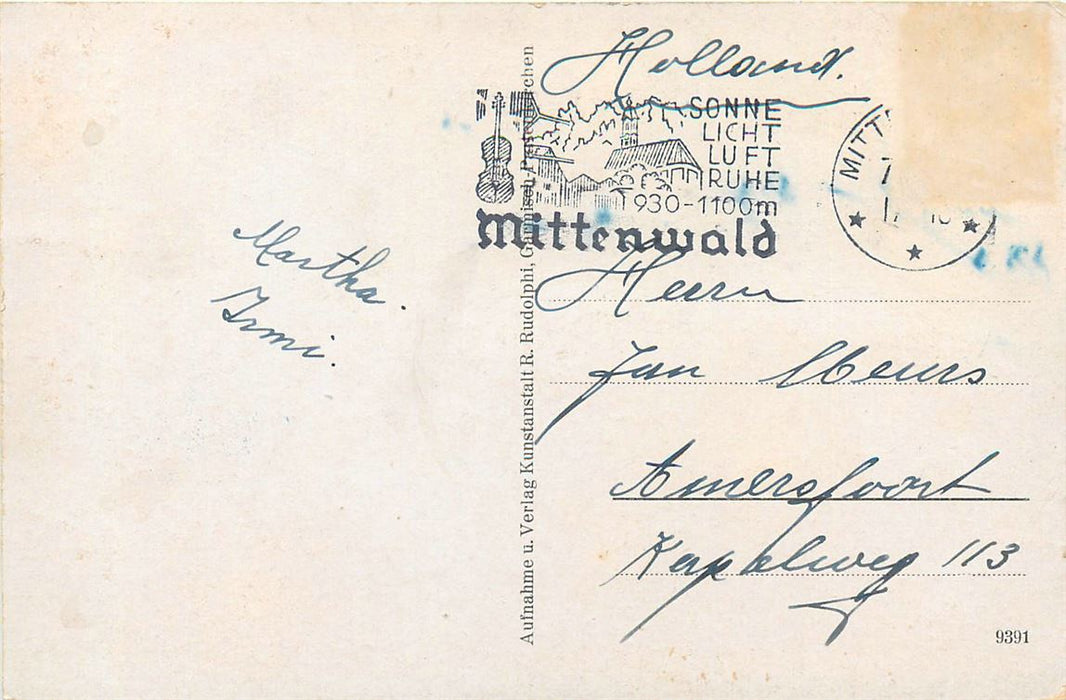 Martha.
Irmi.
Aufnahme u. Verlag Kunstanstalt R. Rudolphi, Garmisch-Partenkirchen
Holland.
SONNE
LICHT
LUFT
RUHE
930-1100m
Mittenwald
MITT
7
Herrn
Jan Meurs
Amersfoort
Kapelweg 113
9391